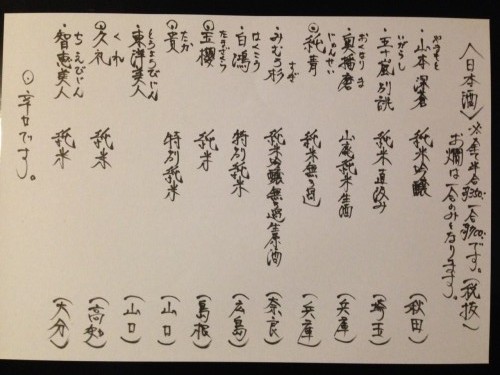 〈日本酒〉※全て半合¥350. 一合¥700.です。(税抜)
お燗は一合のみとなります。
やまもと
・山本 純米吟醸 (秋田)
いがらし
・五十嵐別誂 純米 直汲み (埼玉)
おくはりま
・奥播磨 山廃純米生酒 (兵庫)
じゅんせい
◎純青 純米無ろ過 (兵庫)
すぎ
・みむろ杉 純米吟醸無ろ過生原酒 (奈良)
はくこう
・白鴻 特別純米 (広島)
たまざくら
◎玉櫻 純米 (島根)
たか
◎貴 特別純米 (山口)
とうようびじん
・東洋美人 (山口)
くれ
◎久礼 純米 (高知)
ちえびじん
・智恵美人 純米 (大分)
◎辛口です。